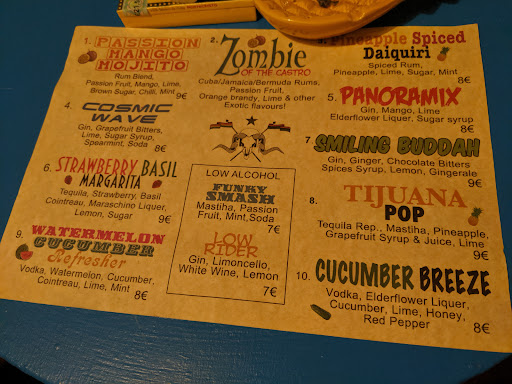 1. PASSION
MANGO
MOJITO
Rum Blend,
Passion Fruit, Mango, Lime,
Brown Sugar, Chilli, Mint
9€
2. Zombie
OF THE CASTRO
Cuba/Jamaica/Bermuda Rums,
Passion Fruit,
Orange brandy, Lime & other
Exotic flavours!
9€
Pineapple Spiced
Daiquiri
Spiced Rum,
Pineapple, Lime, Sugar, Mint
8€
4. COSMIC
WAVE
Gin, Grapefruit Bitters,
Lime, Sugar Syrup,
Spearmint, Soda
8€
5. PANORAMIX
Gin, Mango, Lime
Elderflower Liquer, Sugar syrup
8€
6. STRAWBERRY BASIL
MARGARITA
Tequila, Strawberry, Basil
Cointreau, Maraschino Liquer,
Lemon, Sugar
9€
LOW ALCOHOL
FUNKY
SMASH
Mastiha, Passion
Fruit, Mint, Soda
7€
LOW
RIDER
Gin, Limoncello,
White Wine, Lemon
7€
7. SMILING BUDDAH
Gin, Ginger, Chocolate Bitters
Spices Syrup, Lemon, Gingerale
9€
8. TIJUANA
POP
Tequila Rep., Mastiha, Pineapple,
Grapefruit Syrup & Juice, Lime
9€
9. WATERMELON
CUCUMBER
Refresher
Vodka, Watermelon, Cucumber,
Cointreau, Lime, Mint
8€
10. CUCUMBER BREEZE
Vodka, Elderflower Liquer,
Cucumber, Lime, Honey,
Red Pepper
8€